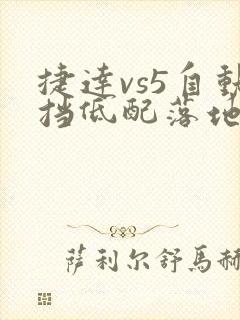 捷達vs5自動
挡低配落地
萨利尔舒馬赫